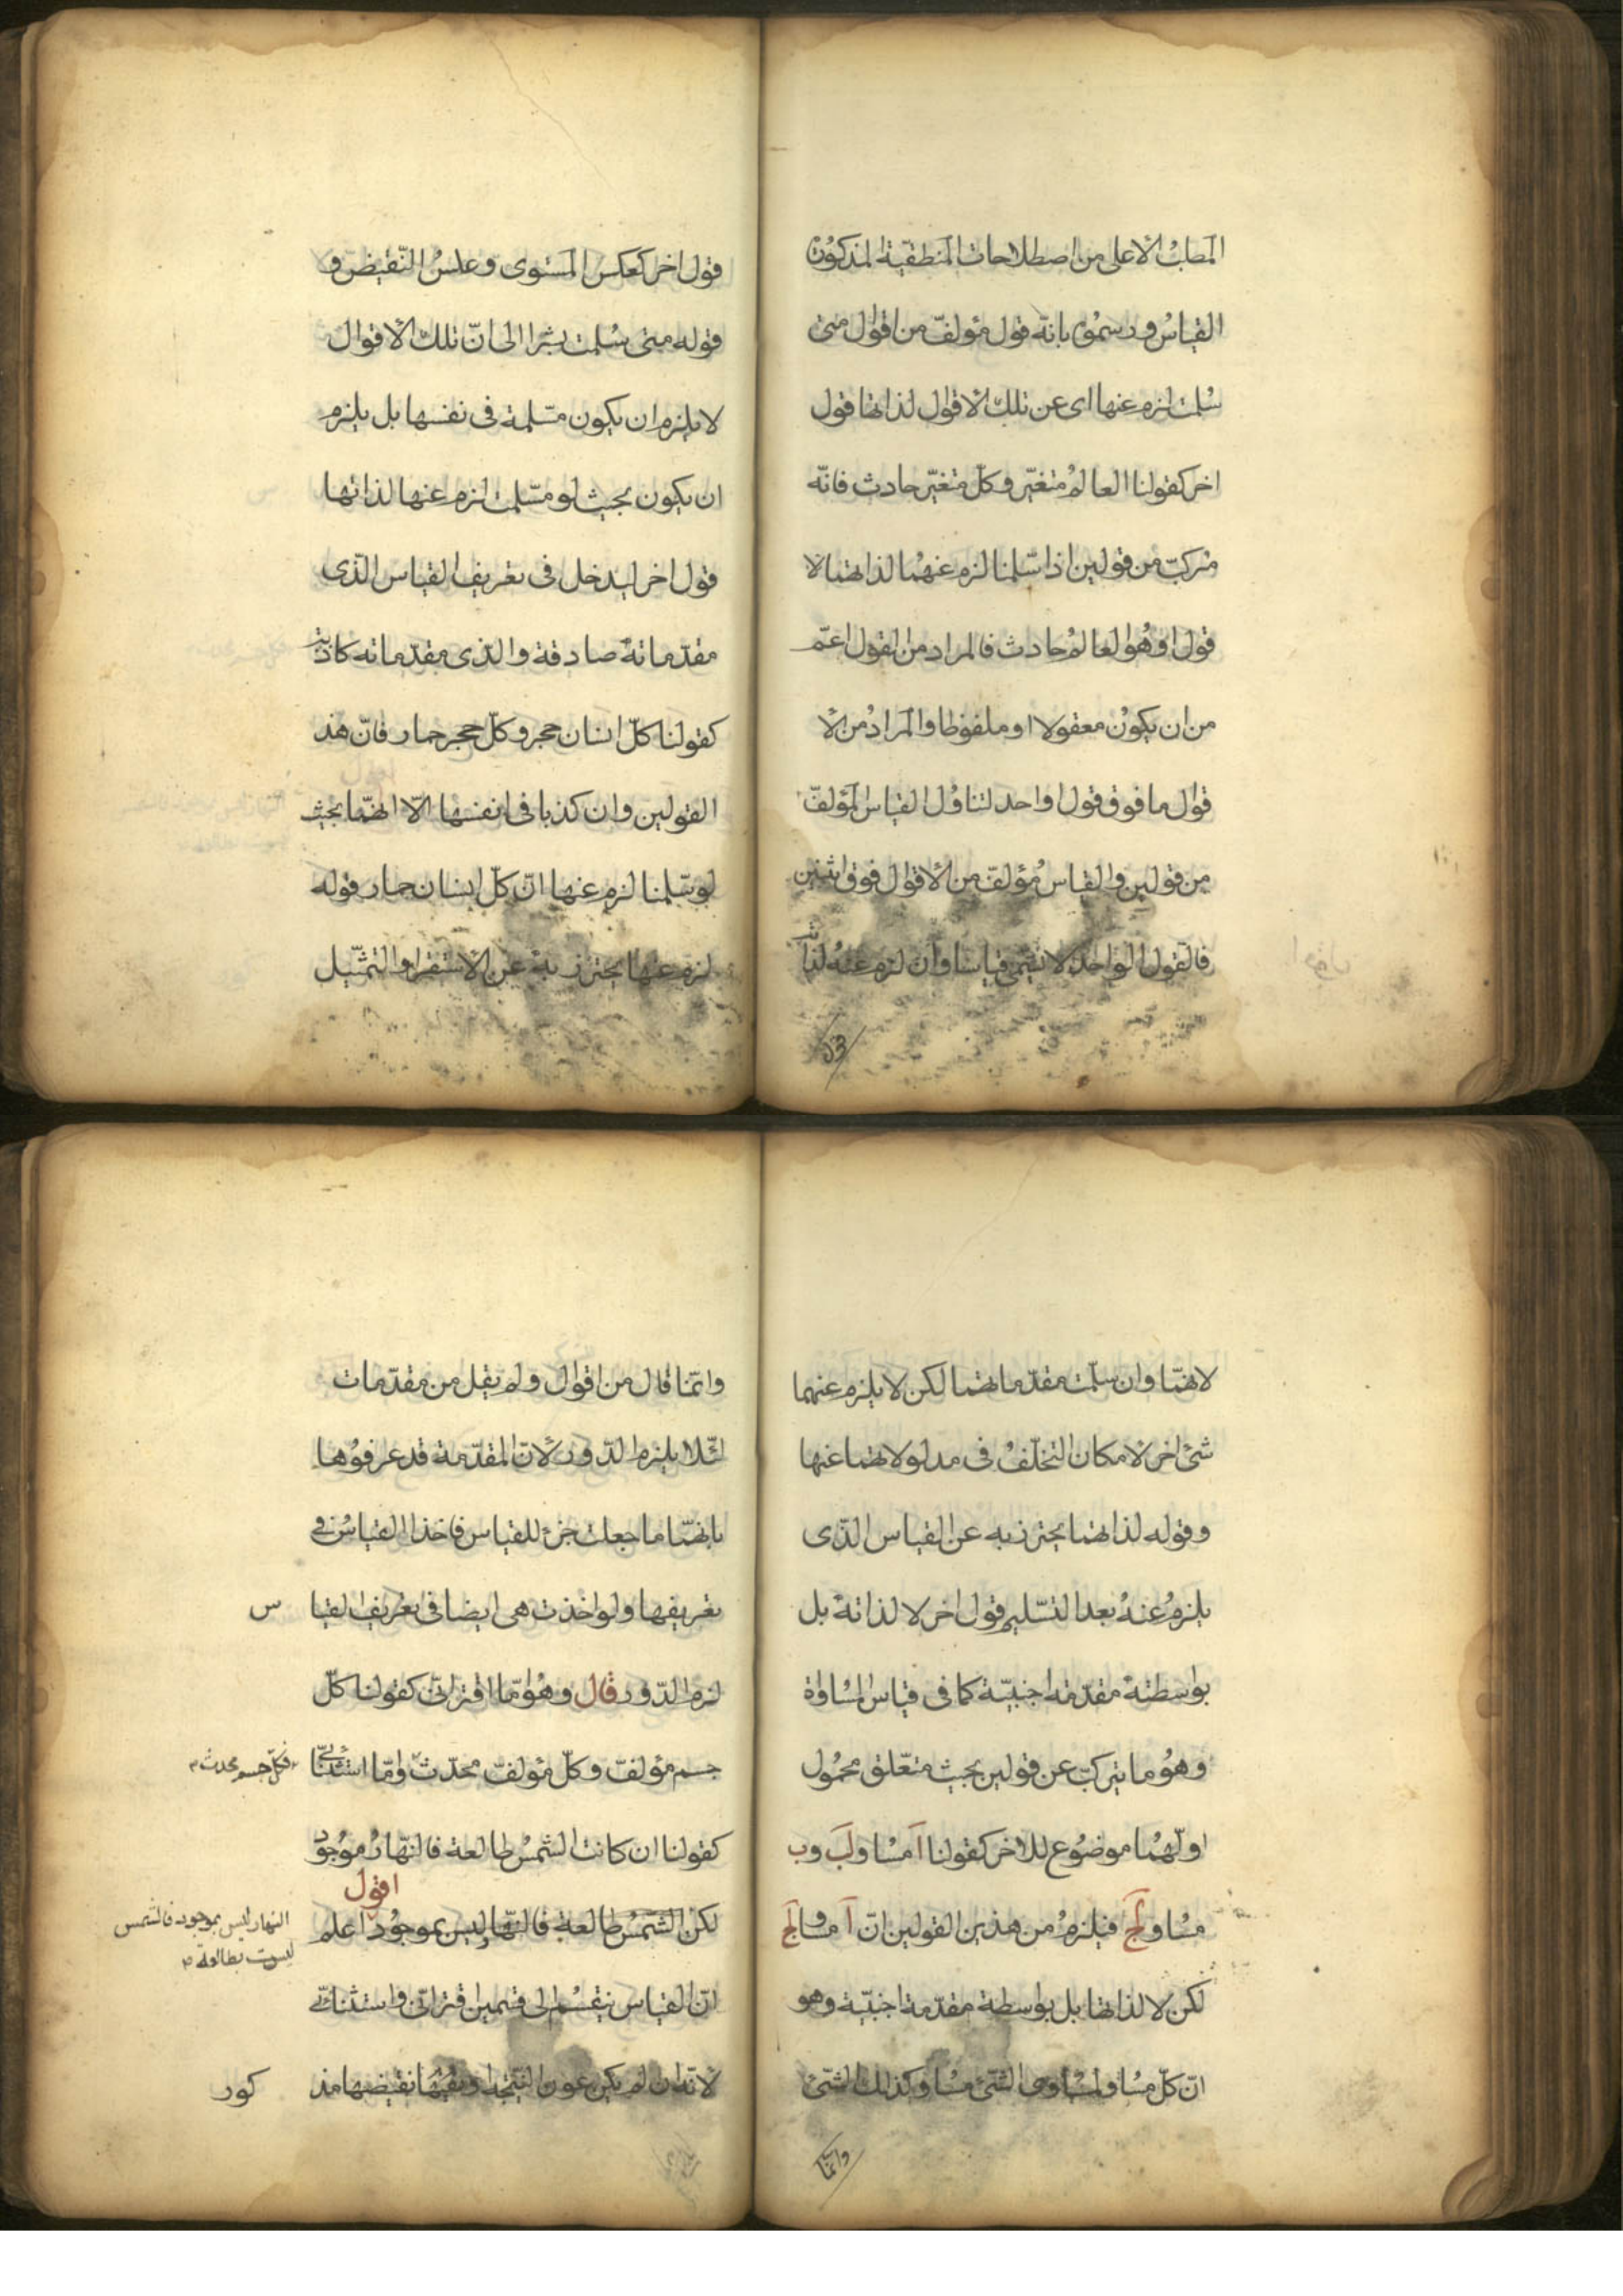 المطلب الاعلى من اصطلاحات المنطقية المذكون
القياس ورسموه بانه قول مؤلف من اقوال متى
سلمت لزم عنها اى عن تلك الاقوال لذاتها قول
اخر كقولنا العالم متغيّر وكلّ متغيّر حادث فانّه
مركبّ من قولين اذا سلّمنا لزم عنهما لذاتهما لا
قول او هو العالم حادث فالمراد من القول اعمّ
من ان يكون معقولا او ملفوظا والمراد من الا
قوال ما فوق قول واحد لتناول القياس المؤلفّ
من قولين والقياس مؤلفّ من الاقوال فوق اثنين
فالقول الواحد لا تسمى قياسا وان لزم عنه لذاته
قول
قول اخر كعكس المستوى وعكس النّقيض و
قوله متى سلمت يشر الى انّ تلك الاقوال
لا يلزم ان يكون مسّلمة فى نفسها بل يلزم
ان يكون بحيث لو سلّمت لزم عنها لذاتها
قول اخر ليدخل فى تعريف القياس الذّى
مقدّماته صادقة والذّى مقدّماته كاذبة
كقولنا كلّ انسان حجر وكلّ حجر حمار فانّ هذ
القولين وان كذبا فى انفسها الاّ انهّما بحيث
لو سلّمنا لزم عنها انّ كلّ انسان حمار قوله
لزم عنها يحترز به عن الاستقرا والتمثّيل
لانهّا وان سلّمت مقدّماتهما لكن لا يلزم عنهما
شئ اخر لامكان التخلّف فى مدلولاتهما عنها
وقوله لذاتهما يحترز به عن القياس الذّى
يلزم عنه بعد التسّليم قول اخر لا لذاته بل
بواسطة مقدّمة اجنبيّة كما فى قياس المساواة
وهو ما يتركبّ عن قولين بحيث متعّلق محمول
اولهّما موضوع للاخر كقولنا آ مساو لبَ وب
مساو لجَ فيلزم من هذين القولين انّ آ مساو لجَ
لكن لا لذاتها بل بواسطة مقدّمة اجنبيّة وهو
انّ كلّ مساو لمساوى الشّئ مساو كذلك الشّئ
وانما
وانمّا قال من اقوال ولم يقل من مقدّمات
لئلّا يلزم الدّور لانّ المقدّمة قد عرفوها
بانهّا ما جعلت جزء للقياس فاخذ القياس فى
تعريفها ولو اخذت هى ايضا فى تعريف القيا س
لزم الدّور قال وهو امّا اقترانىّ كقولنا كلّ
جسم مؤلفّ وكلّ مؤلفّ محدث وامّا استثنائىّ
فكلّ جسم محدث
كقولنا ان كانت الشّمس طالعة فالنهّار موجود
اقول
لكن الشّمس طالعة فالنهّار ليس بموجود اعلم
النهار ليس بموجود فالشمس
ليست بطالعة
انّ القياس ينقسم الى قسمين اقترانىّ واستثنائىّ
لانّه ان لم يكن عين النتّيجة ونقيضها مذ كور